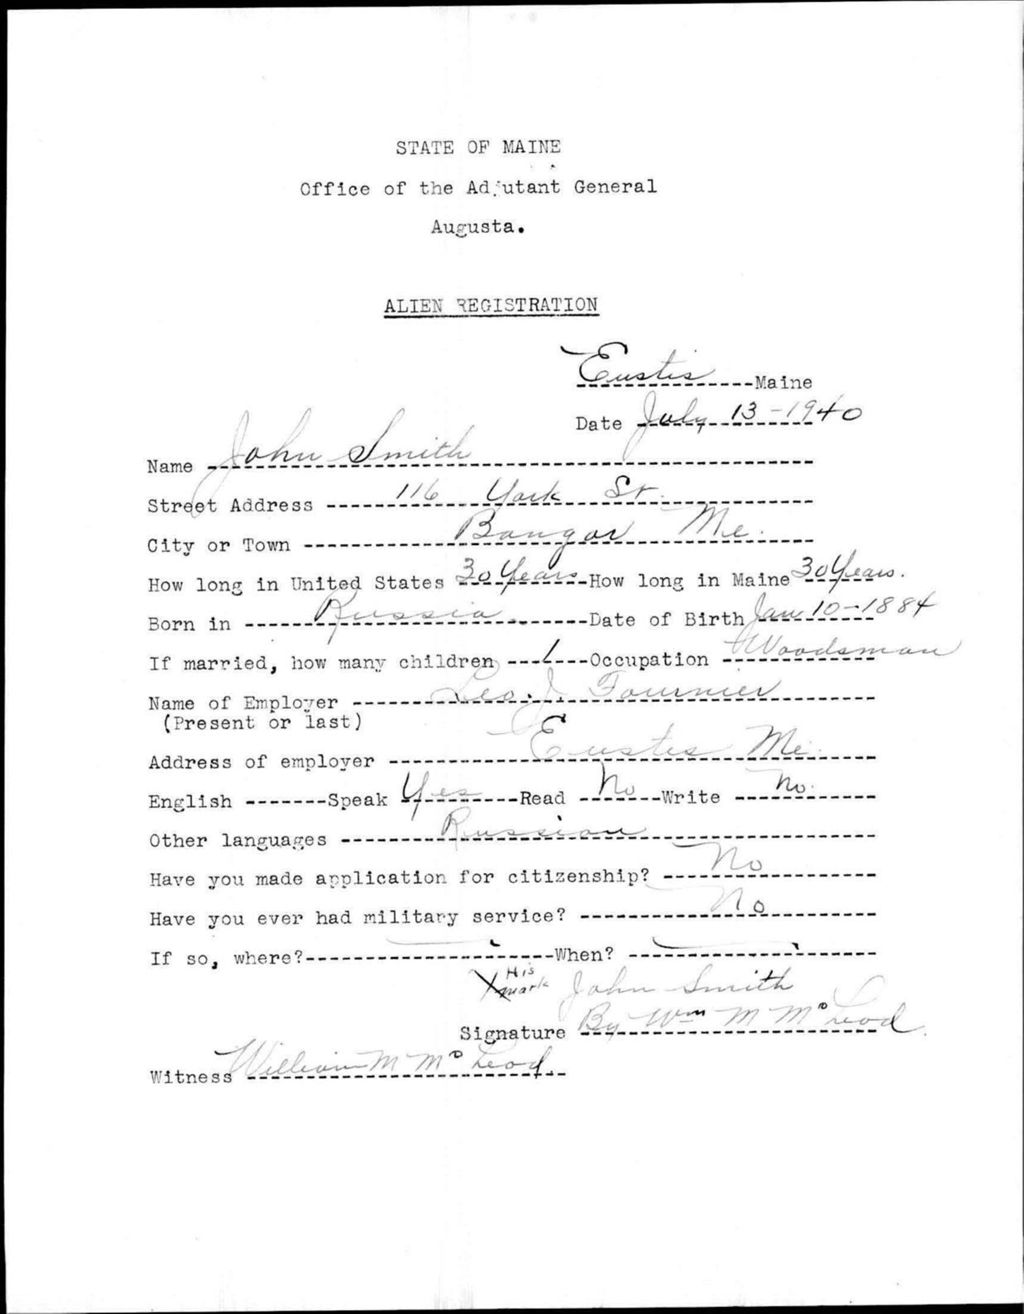 STATE OF MAINE
Office of the Adjutant General
Augusta.
ALIEN REGISTRATION
Eustis Maine
Date July 13-1940
Name John Smith
Street Address 116 York St.
City or Town Bangor Me.
How long in United States 30 Years How long in Maine 30 Years.
Born in Russia Date of Birth Jan 10-1884
If married, how many children 1 Occupation Woodsman
Name of Employer Leo. J. Fournier
(Present or last)
Address of employer Eustis Me.
English Speak Yes Read No Write No.
Other languages Russian
Have you made application for citizenship? No
Have you ever had military service? No
If so, where? When?
X His mark John Smith
Signature By Wm M McLeod.
Witness William M McLeod.